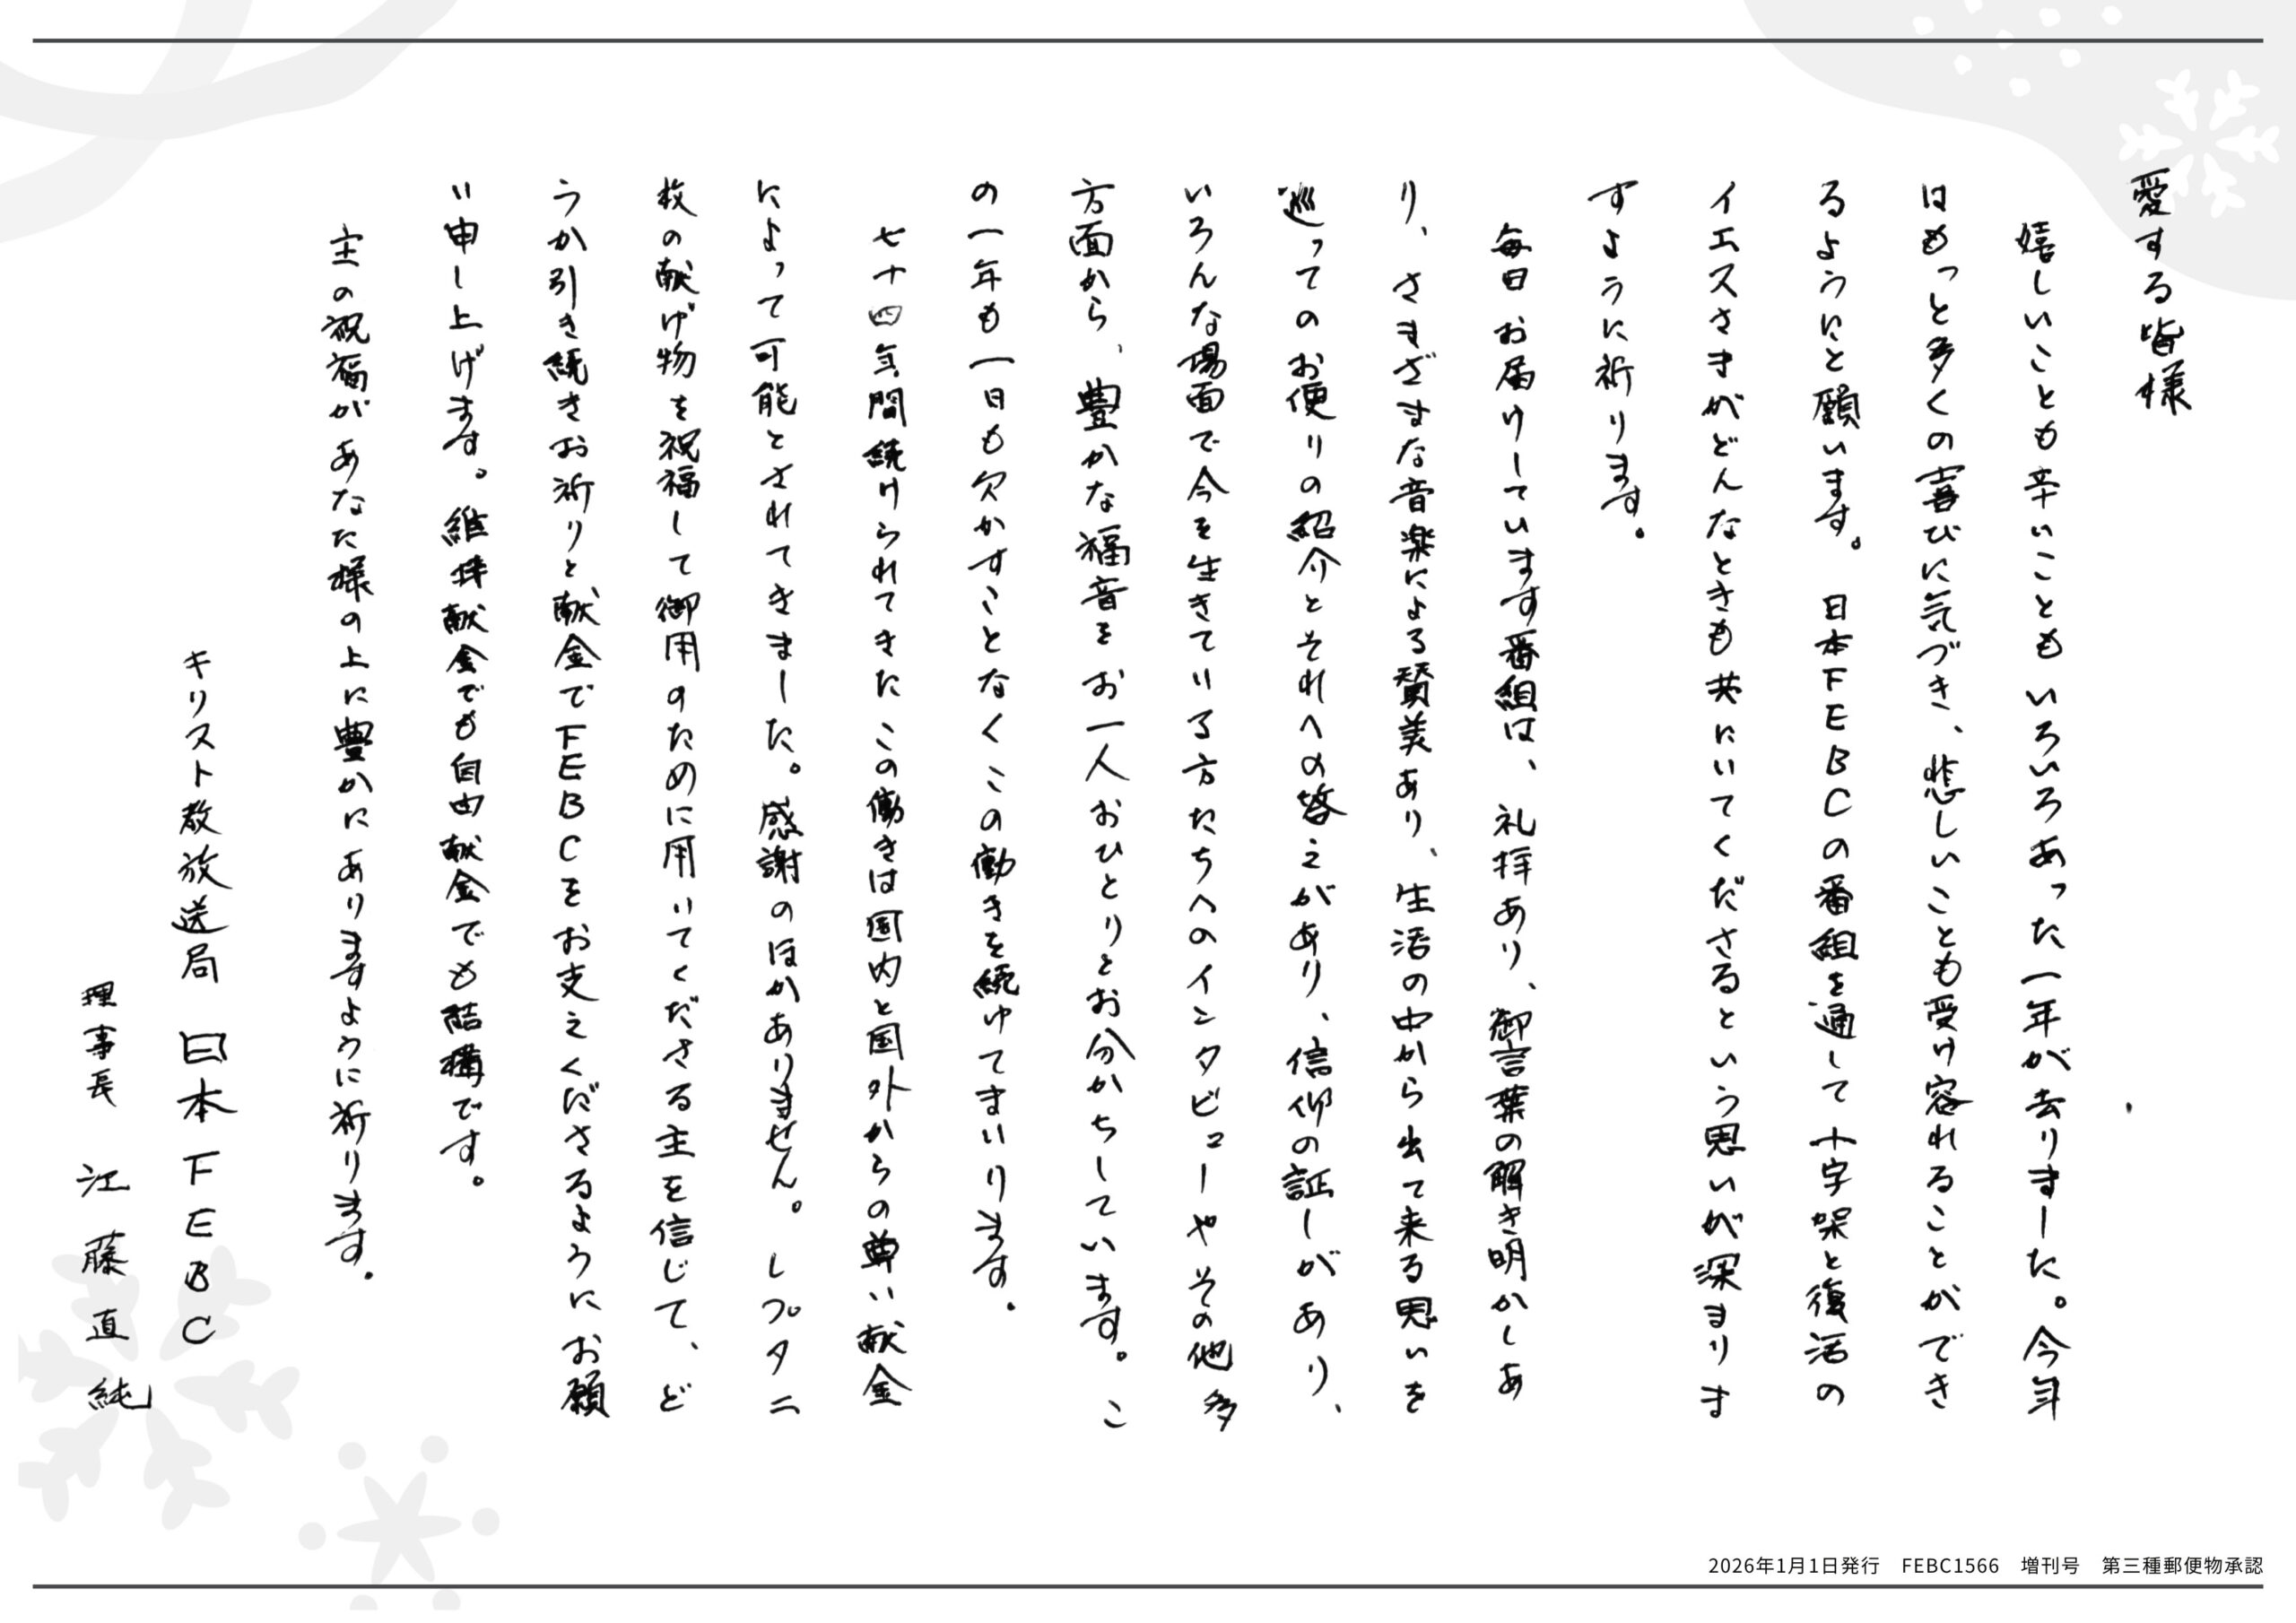 愛する皆様
嬉しいことも辛いこともいろいろあった一年が去りました。今年
はもっと多くの喜びに気づき、悲しいことも受け容れることができ
るようにと願います。 日本FEBCの番組を通して十字架と復活の
イエスさまがどんなときも共にいてくださるという思いが深まりま
すように祈ります。
毎日お届けしています番組は、礼拝あり、御言葉の解き明かしあ
り、さまざまな音楽による賛美あり、生活の中から出て来る思いを
巡ってのお便りの紹介とそれへの答えがあり、信仰の証しがあり、
いろんな場面で今を生きている方たちへのインタビューやその他多
方面から、豊かな福音をお一人おひとりとお分かちしています。こ
の一年も一日も欠かすことなくこの働きを続けてまいります。
七十四年間続けられてきたこの働きは国内と国外からの尊い献金
によって可能とされてきました。感謝のほかありません。 レプタ二
枚の献げ物を祝福して御用のために用いてくださる主を信じて、ど
うか引き続きお祈りと献金でFEBCをお支えくださるようにお願
い申し上げます。維持献金でも自由献金でも結構です。
主の祝福があなた様の上に豊かにありますように祈ります。
キリスト教放送局 日本FEBC
理事長 江藤直純
2026年1月1日発行 FEBC1566 増刊号 第三種郵便物承認